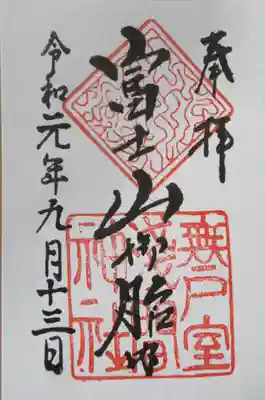 奉拝
富士山御胎内
無戸室
浅間
神社
令和元年九月十三日